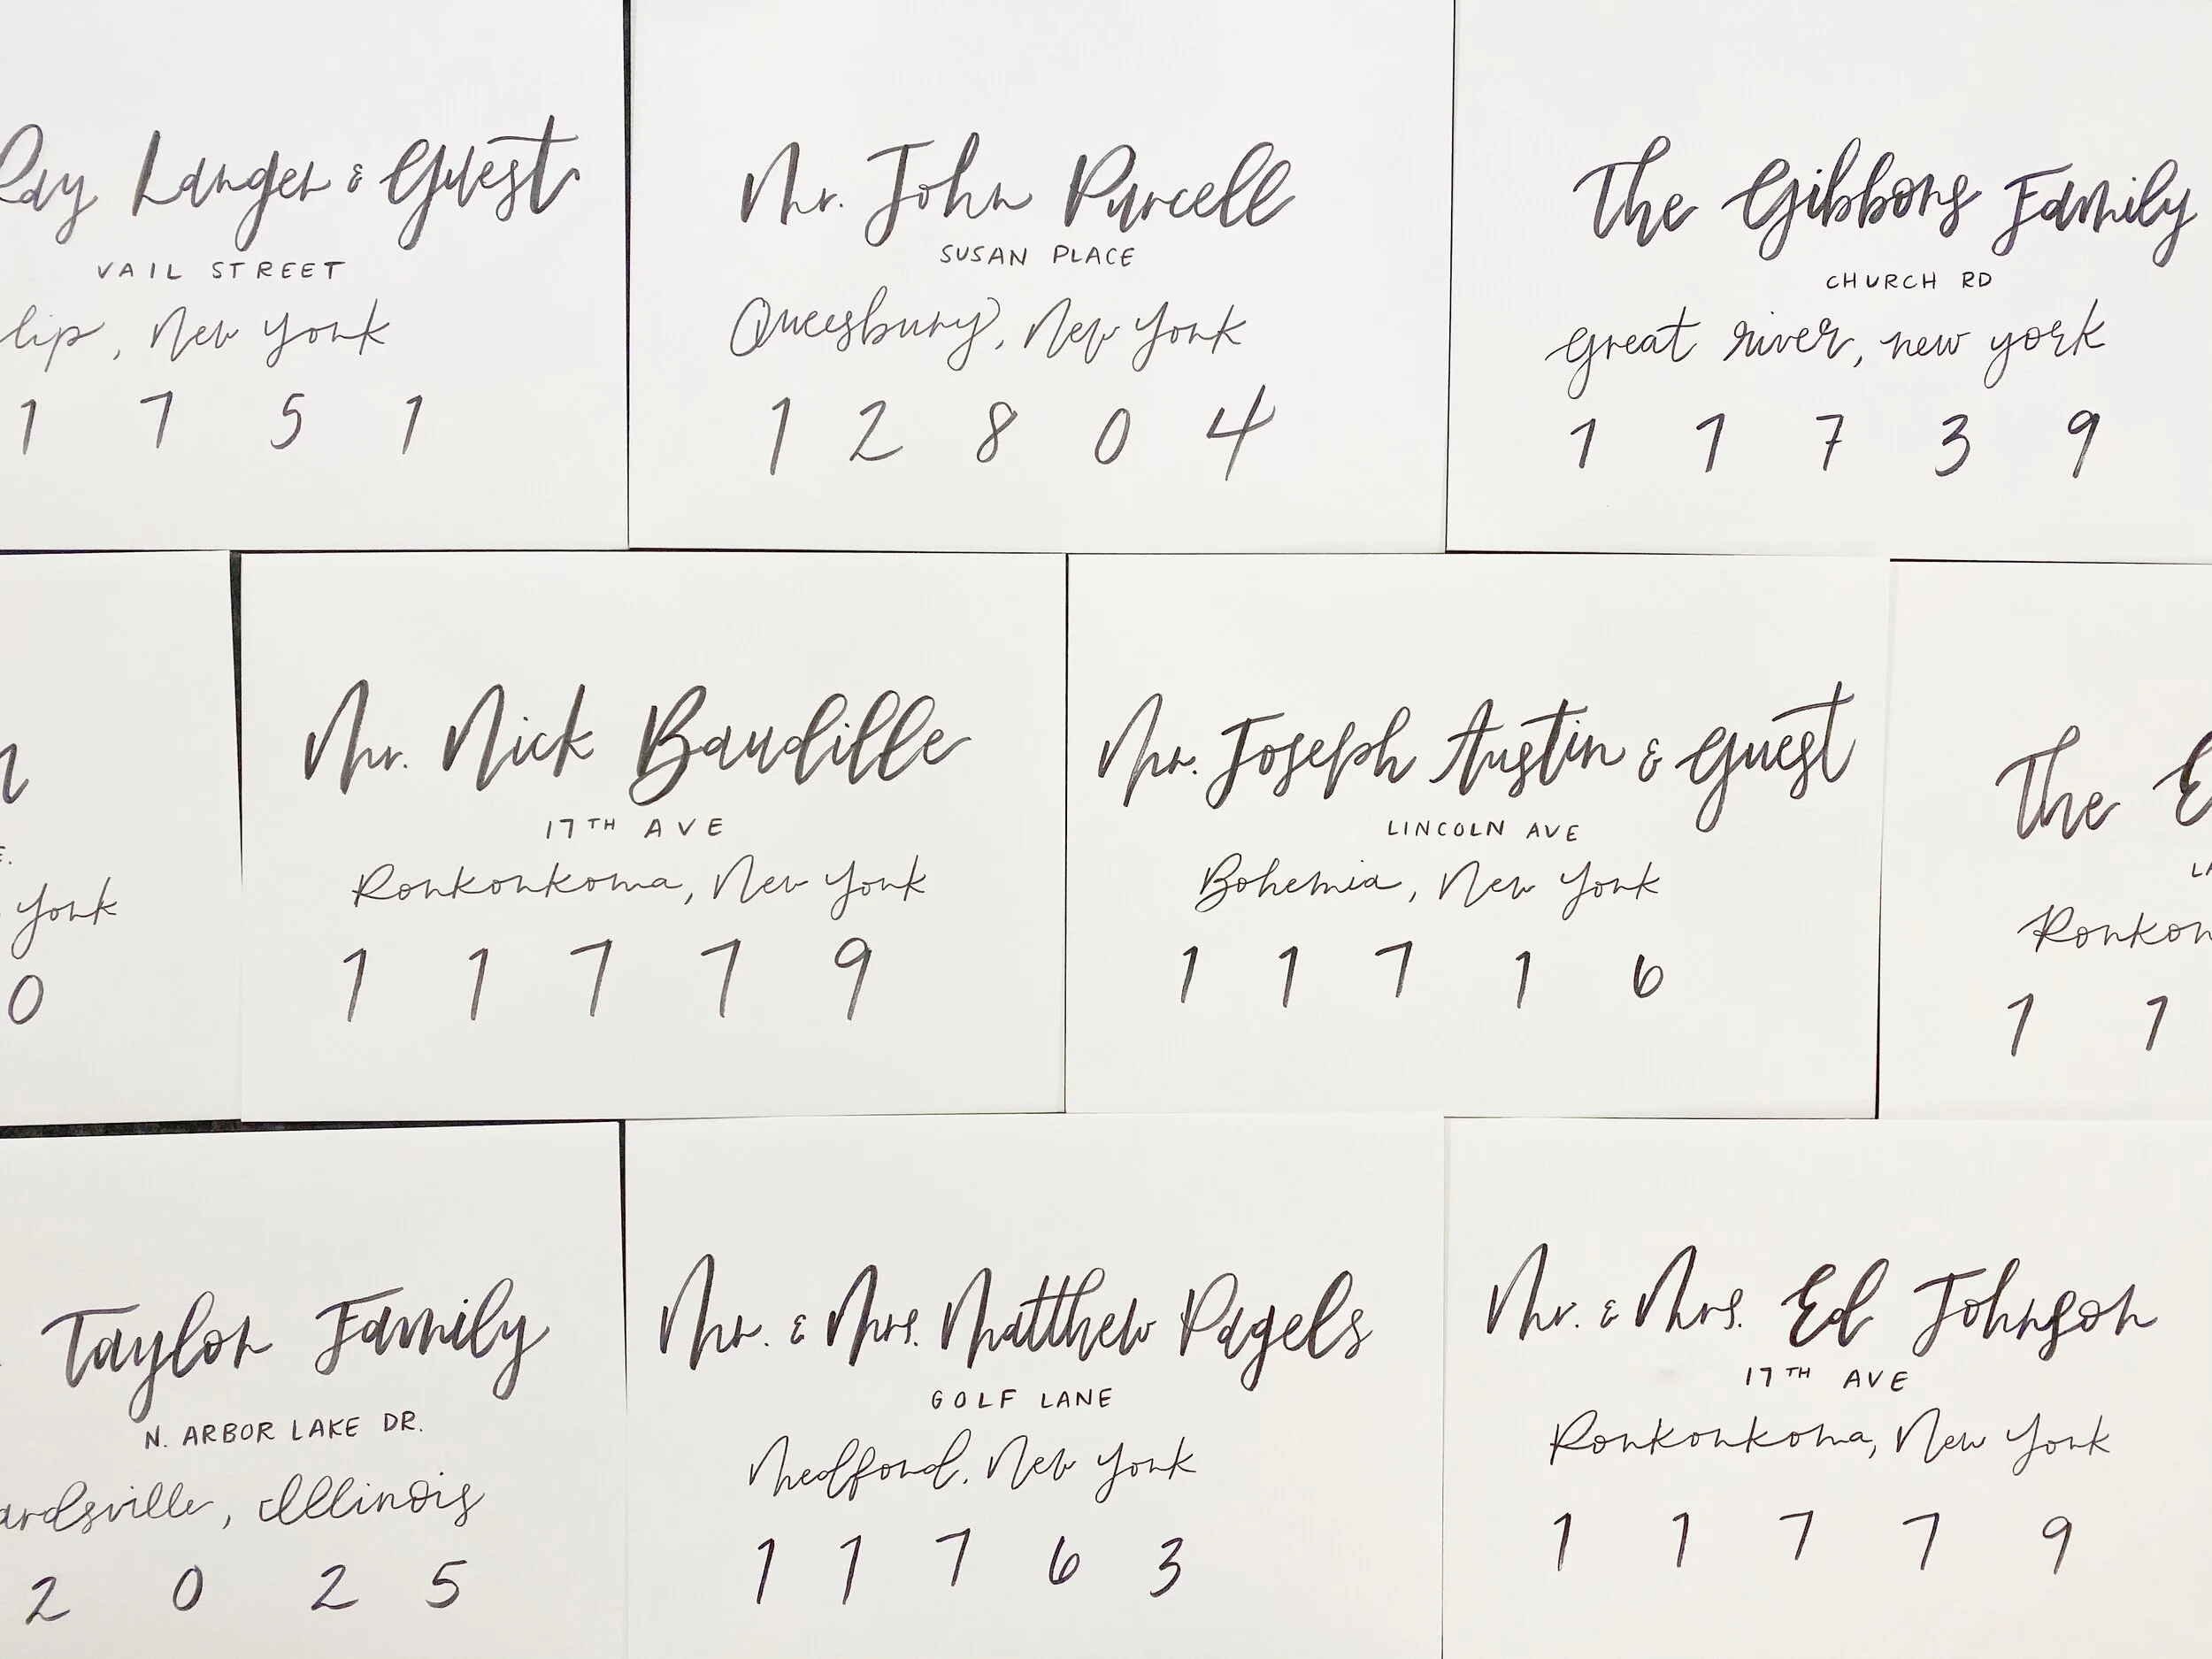 Ray Langer & Guest
VAIL STREET
lip, New York
1 7 5 1
Mr. John Purcell
SUSAN PLACE
Queesbury, New York
1 2 8 0 4
The Gibbons Family
CHURCH RD
great river, new york
1 1 7 3 9
E.
York
0
Mr. Nick Baudille
17TH AVE
Ronkonkoma, New York
1 1 7 7 9
Mr. Joseph Austin & Guest
LINCOLN AVE
Bohemia, New York
1 1 7 1 6
The E
LA
Ronkon
1 1
Taylor Family
N. ARBOR LAKE DR.
ardsville, Illinois
2 0 2 5
Mr. & Mrs. Matthew Pagels
GOLF LANE
Medford, New York
1 1 7 6 3
Mr. & Mrs. Ed Johnson
17TH AVE
Ronkonkoma, New York
1 1 7 7 9